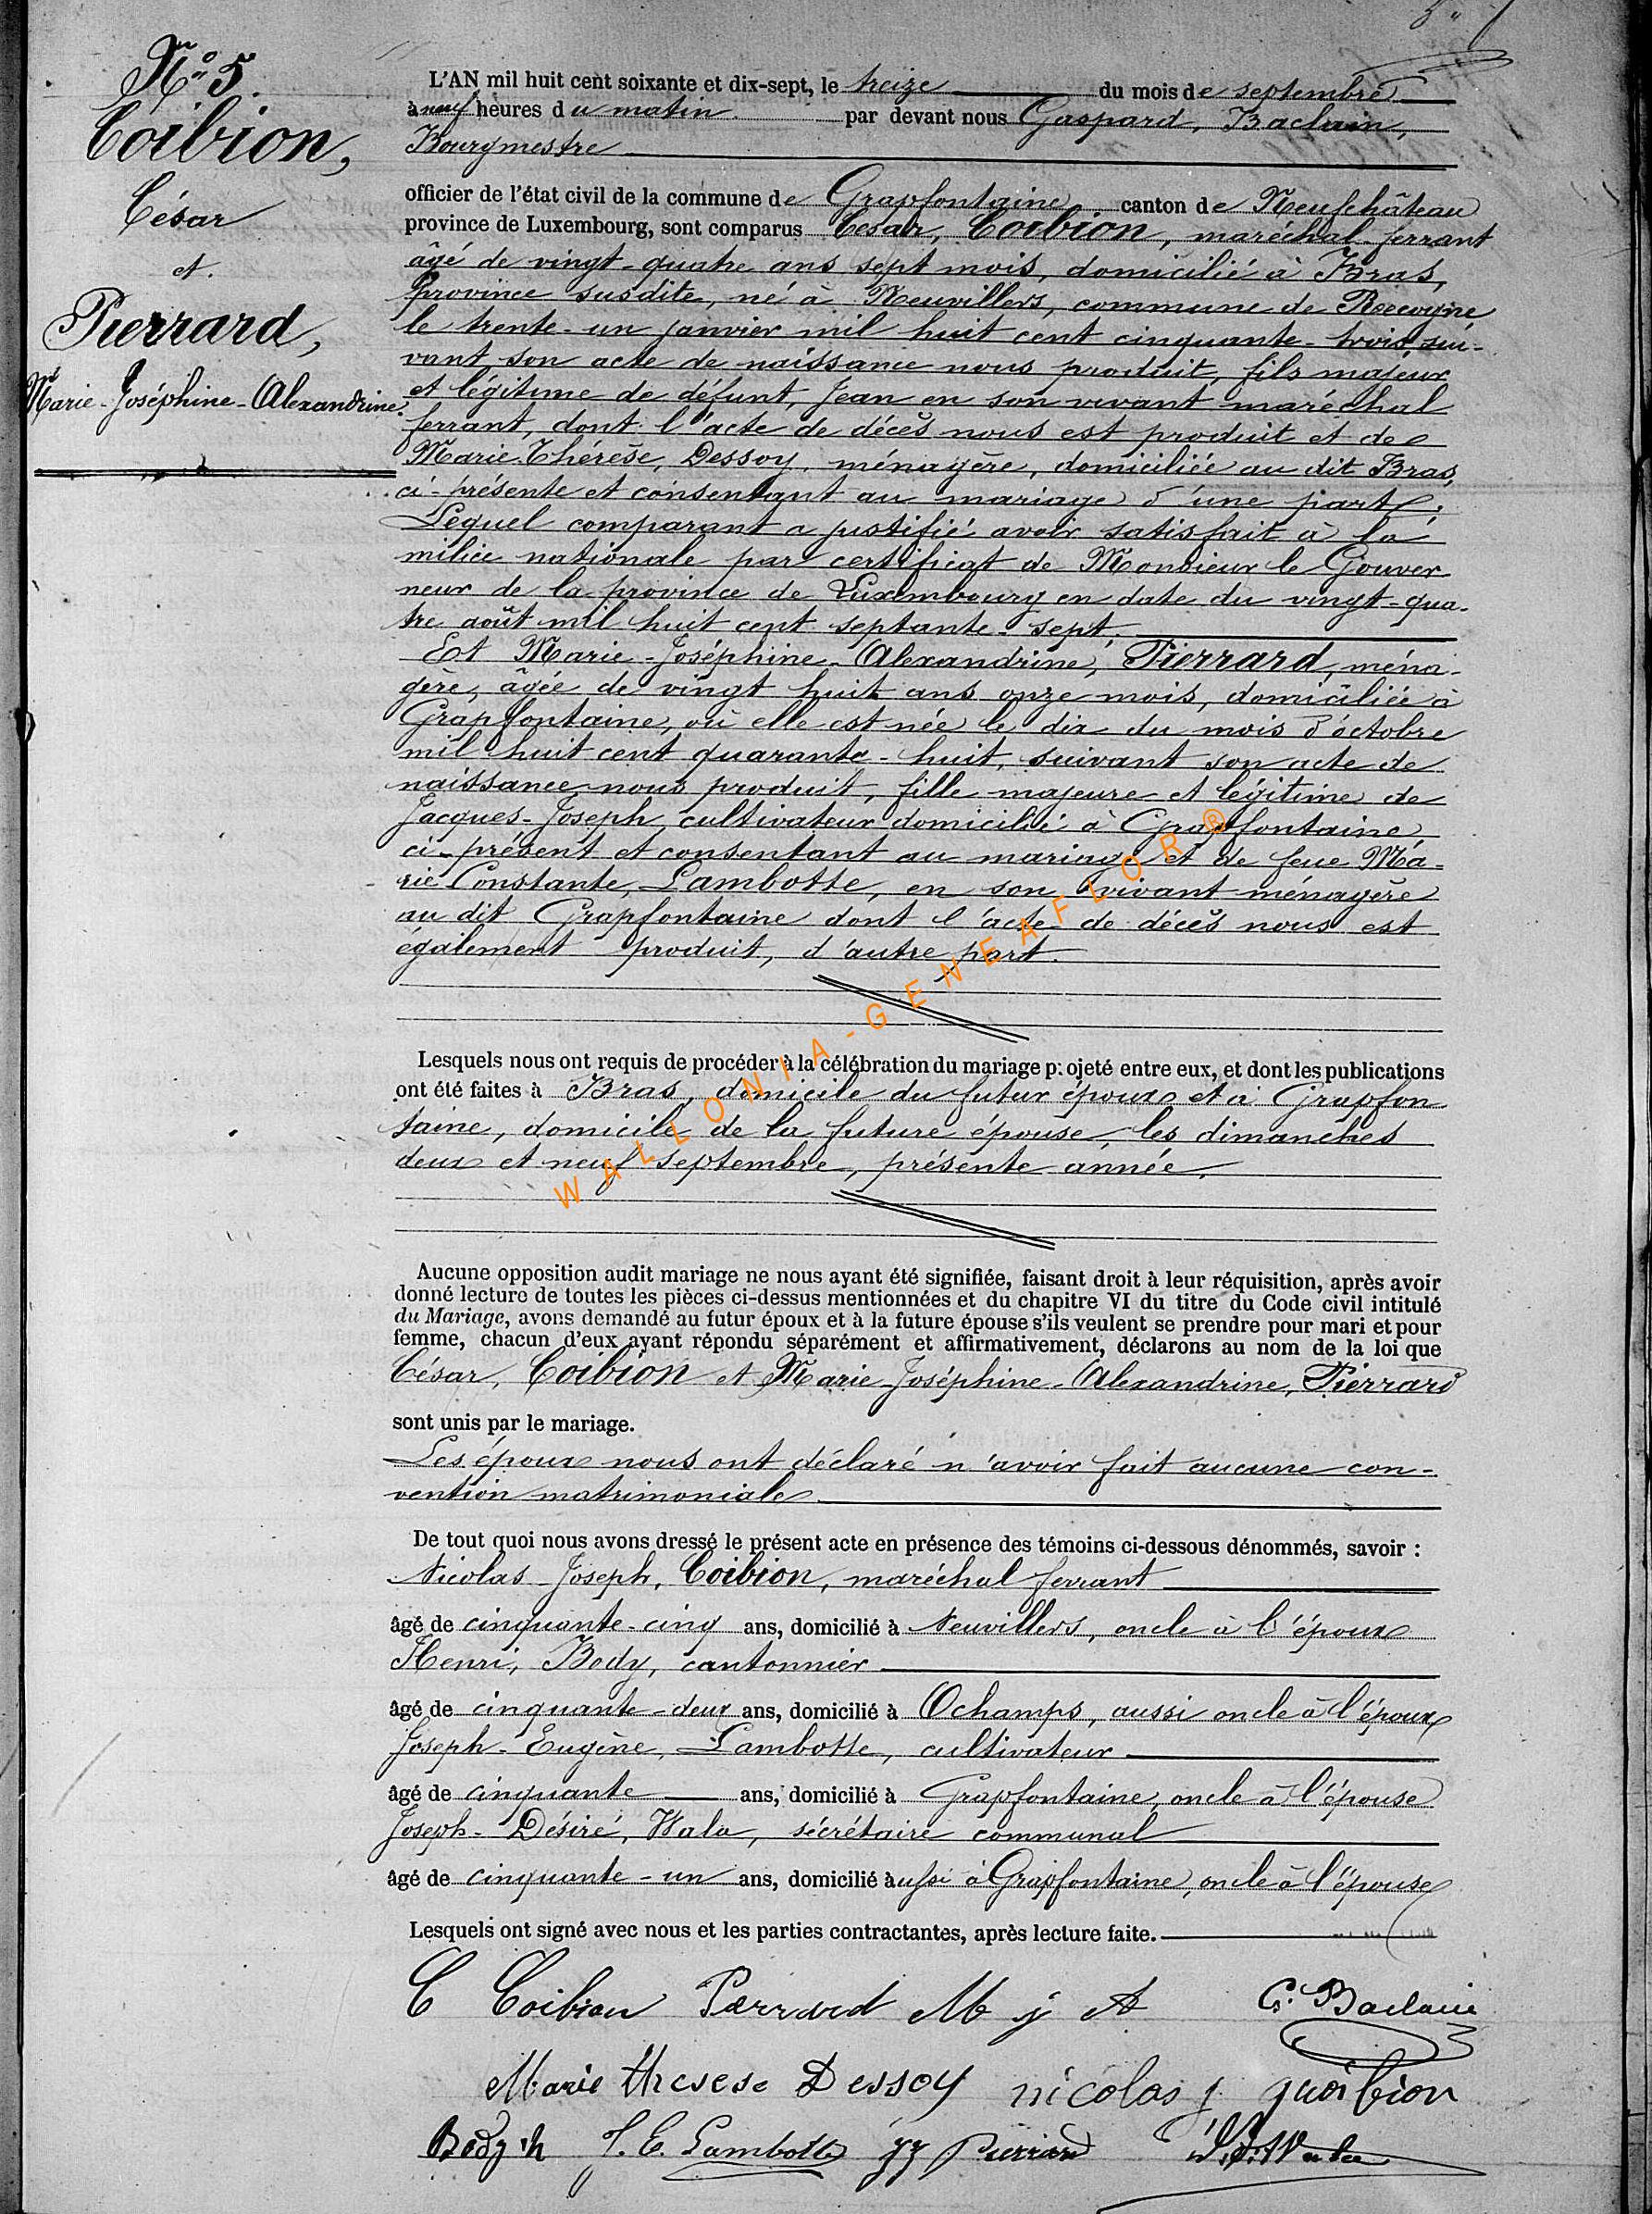 N° 5.
Coibion,
César
et
Pierrard,
Marie-Joséphine-Alexandrine.
L'AN mil huit cent soixante et dix-sept, le treize du mois de septembre
à neuf heures du matin par devant nous Gaspard, Baclain,
Bourgmestre
officier de l'état civil de la commune de Grapfontaine canton de Neufchâteau
province de Luxembourg, sont comparus César, Coibion, maréchal-ferrant
âgé de vingt-quatre ans sept mois, domicilié à Bras,
province susdite, né à Neuvillers, commune de Recogne
le trente-un janvier mil huit cent cinquante-trois, sui-
vant son acte de naissance nous produit, fils majeur
et légitime de défunt, Jean en son vivant maréchal
ferrant, dont l'acte de décès nous est produit et de
Marie Thérèse, Dessoy, ménagère, domiciliée au dit Bras,
ci-présente et consentant au mariage d'une part;
Lequel comparant a justifié avoir satisfait à la
milice nationale par certificat de Monsieur le Gouver
neur de la province de Luxembourg en date du vingt-qua-
tre août mil huit cent septante-sept.
Et Marie-Joséphine-Alexandrine, Pierrard, ména-
gère, âgée de vingt huit ans onze mois, domiciliée à
Grapfontaine, où elle est née le dix du mois d'octobre
mil huit cent quarante-huit, suivant son acte de
naissance nous produit, fille majeure et légitime de
Jacques-Joseph, cultivateur domicilié à Grapfontaine
ci-présent et consentant au mariage et de feue Ma-
rie Constante, Lambotte, en son vivant ménagère
au dit Grapfontaine dont l'acte de décès nous est
également produit, d'autre part.
Lesquels nous ont requis de procéder à la célébration du mariage p: ojeté entre eux, et dont les publications
ont été faites à Bras, domicile du futur époux et à Grapfon
taine, domicile de la future épouse, les dimanches
deux et neuf septembre, présente année.
WALLONIA-GENEAFLOR®
Aucune opposition audit mariage ne nous ayant été signifiée, faisant droit à leur réquisition, après avoir
donné lecture de toutes les pièces ci-dessus mentionnées et du chapitre VI du titre du Code civil intitulé
du Mariage, avons demandé au futur époux et à la future épouse s'ils veulent se prendre pour mari et pour
femme, chacun d'eux ayant répondu séparément et affirmativement, déclarons au nom de la loi que
César, Coibion et Marie-Joséphine-Alexandrine, Pierrard
sont unis par le mariage.
Les époux nous ont déclaré n'avoir fait aucune con-
vention matrimoniale
De tout quoi nous avons dressé le présent acte en présence des témoins ci-dessous dénommés, savoir :
Nicolas-Joseph, Coibion, maréchal ferrant
âgé de cinquante-cinq ans, domicilié à Neuvillers, oncle à l'époux
Henri, Body, cantonnier
âgé de cinquante-deux ans, domicilié à Ochamps, aussi oncle à l'époux
Joseph-Eugène, Lambotte, cultivateur
âgé de cinquante ans, domicilié à Grapfontaine, oncle à l'épouse
Joseph-Désiré, Wala, secrétaire communal
âgé de cinquante-un ans, domicilié aussi à Grapfontaine, oncle à l'épouse
Lesquels ont signé avec nous et les parties contractantes, après lecture faite.
C Coibion Pierrard M j A G. Baclain
Marie therese Dessoy nicolas j quoibion
Body h J. E. Lambotte JJ Pierrard J. D. Wala